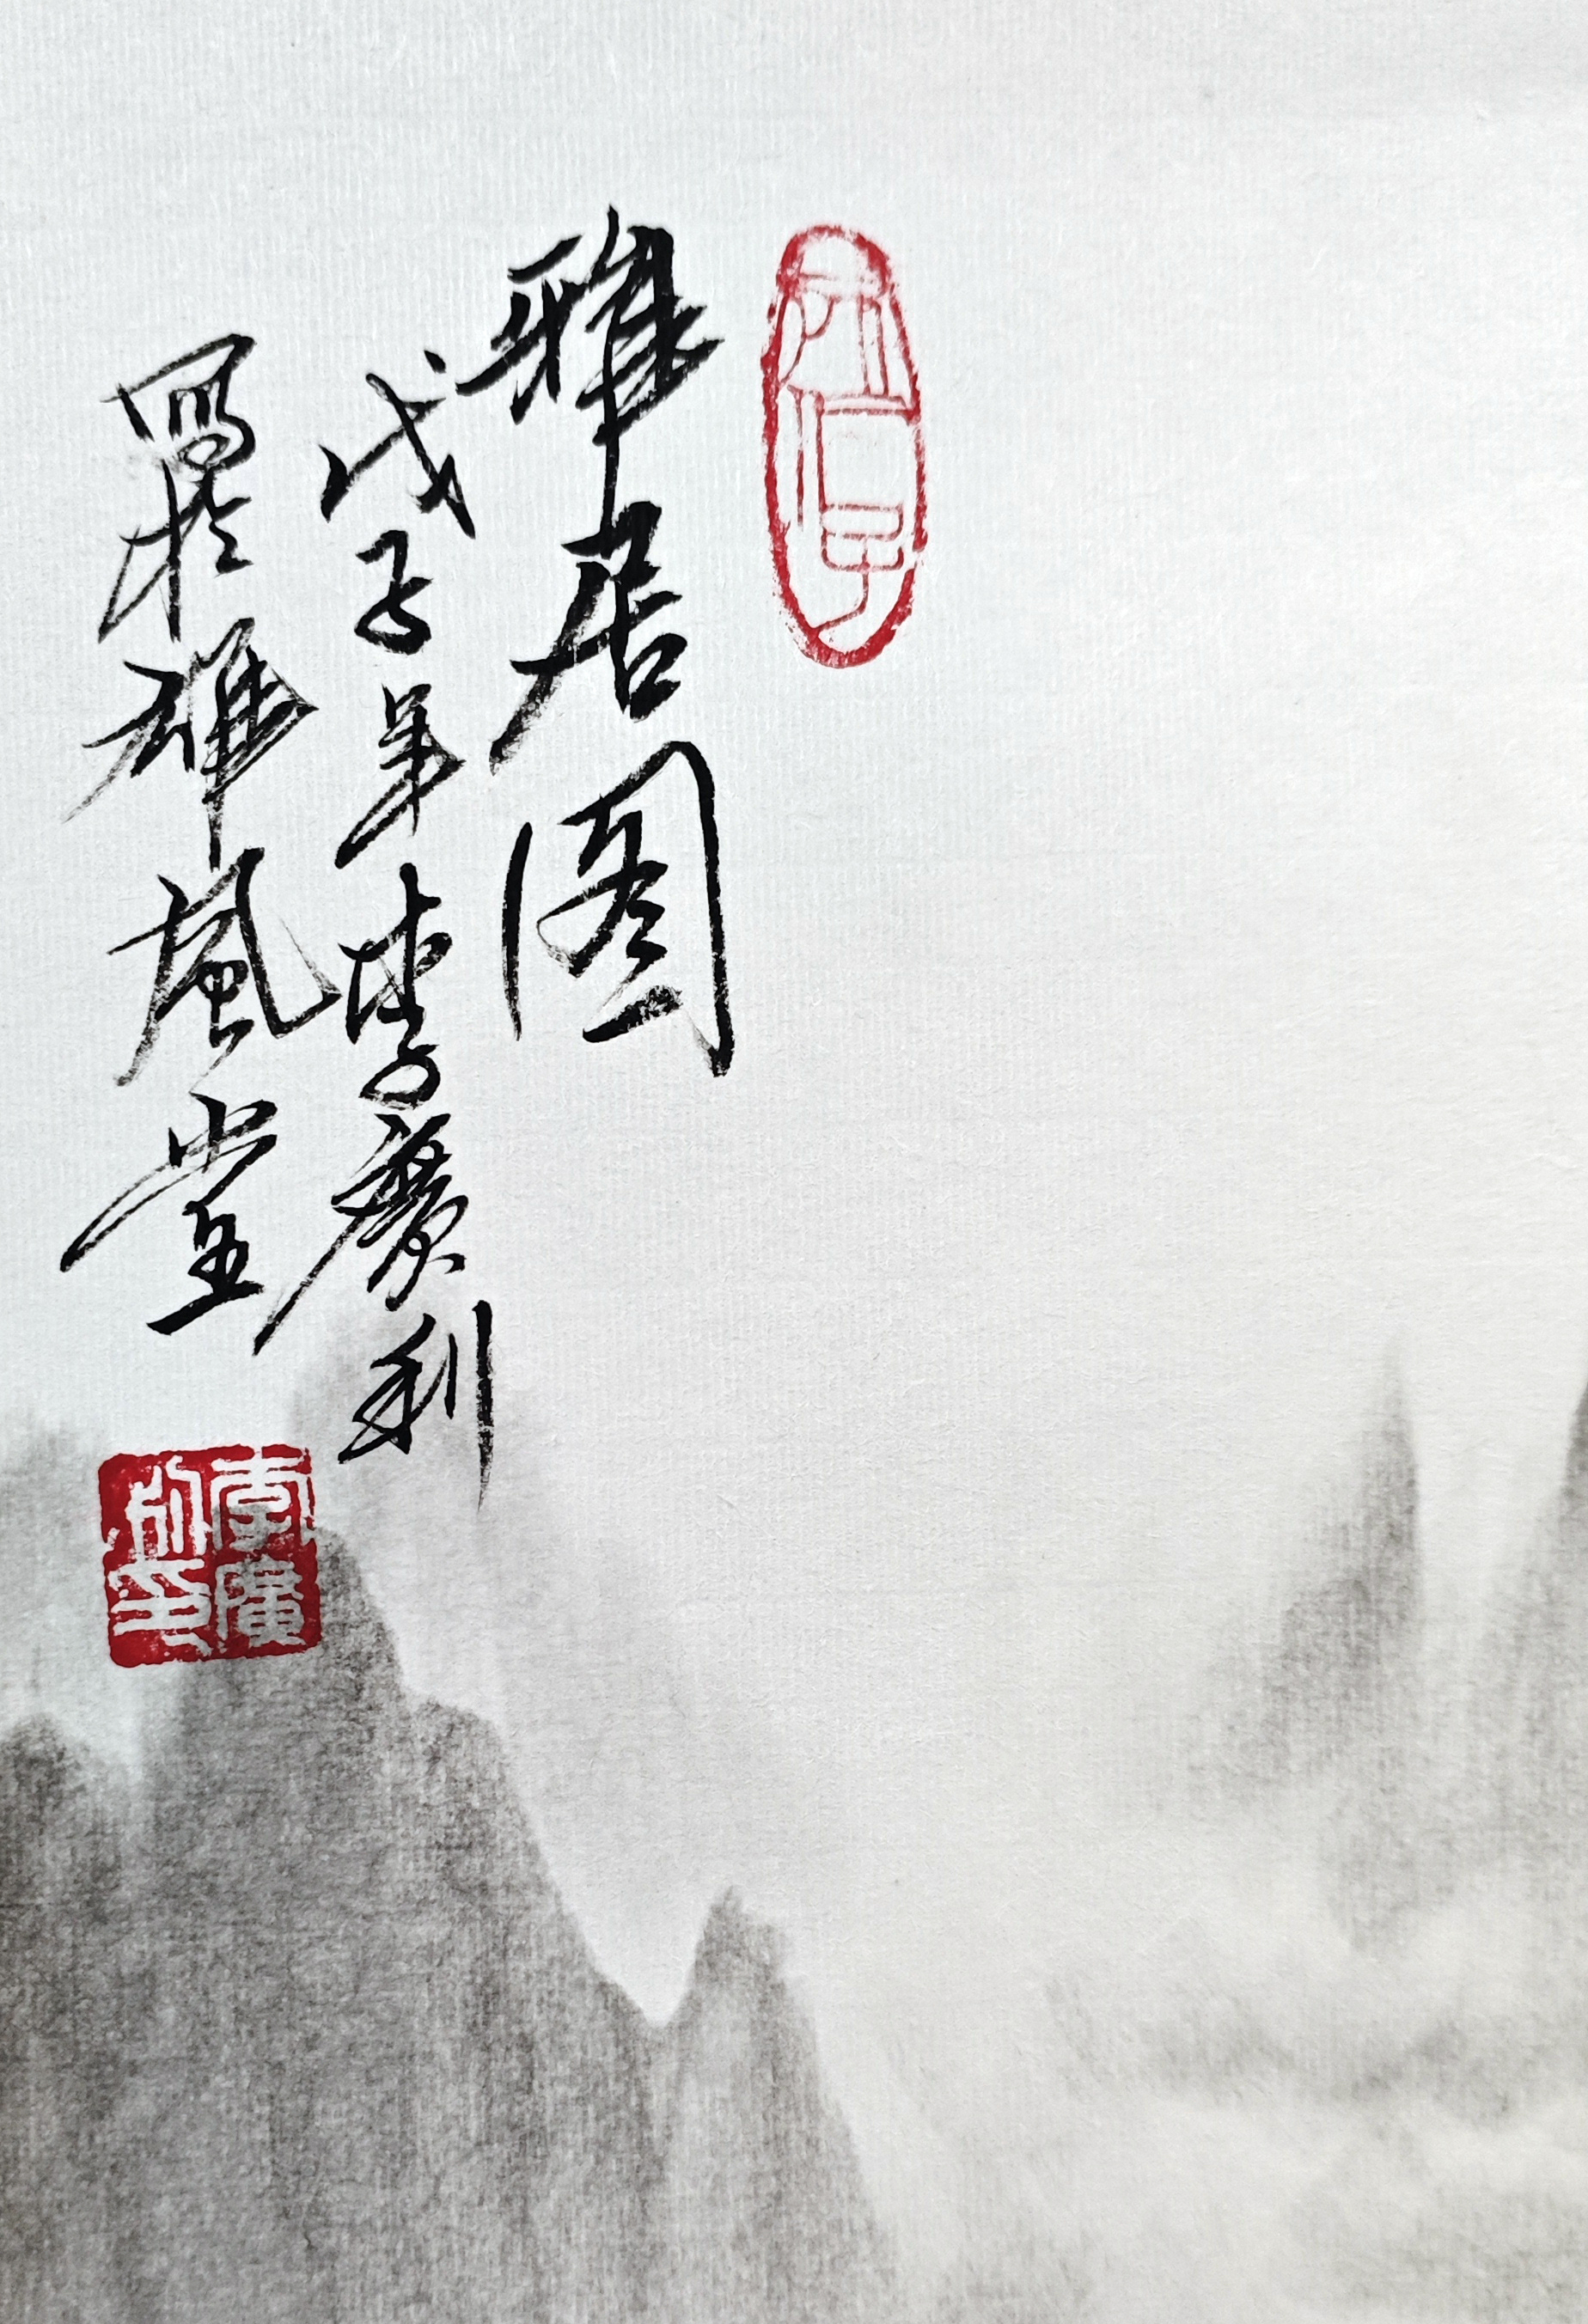 雅居图
戊子年李廣利
寫於雄風堂
李廣利印